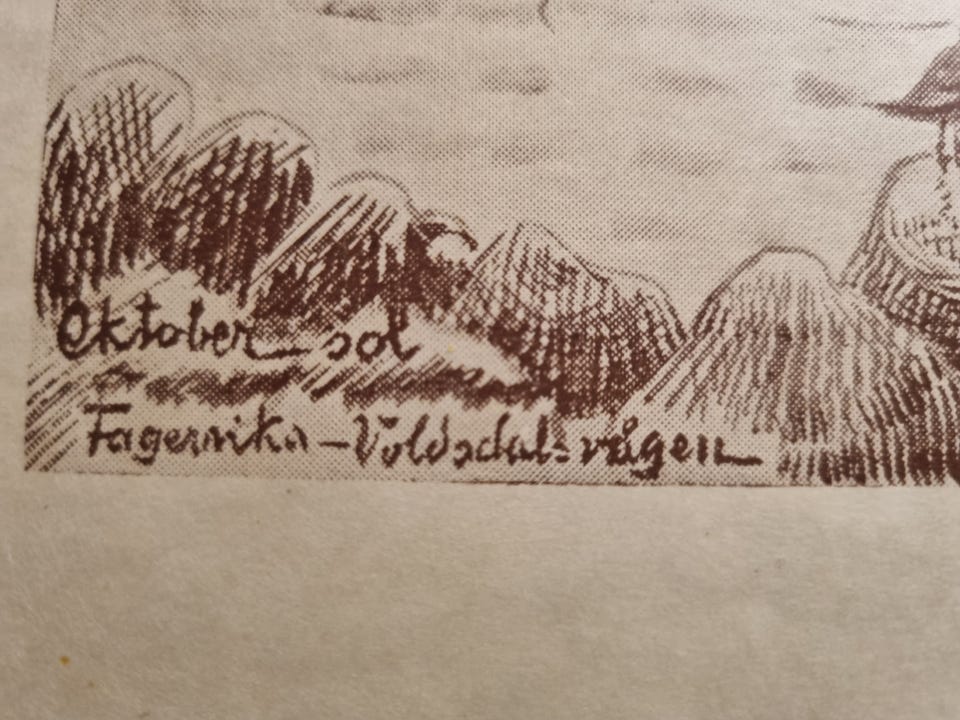 Oktober sol
Fagervika - Voldsdalsvågen